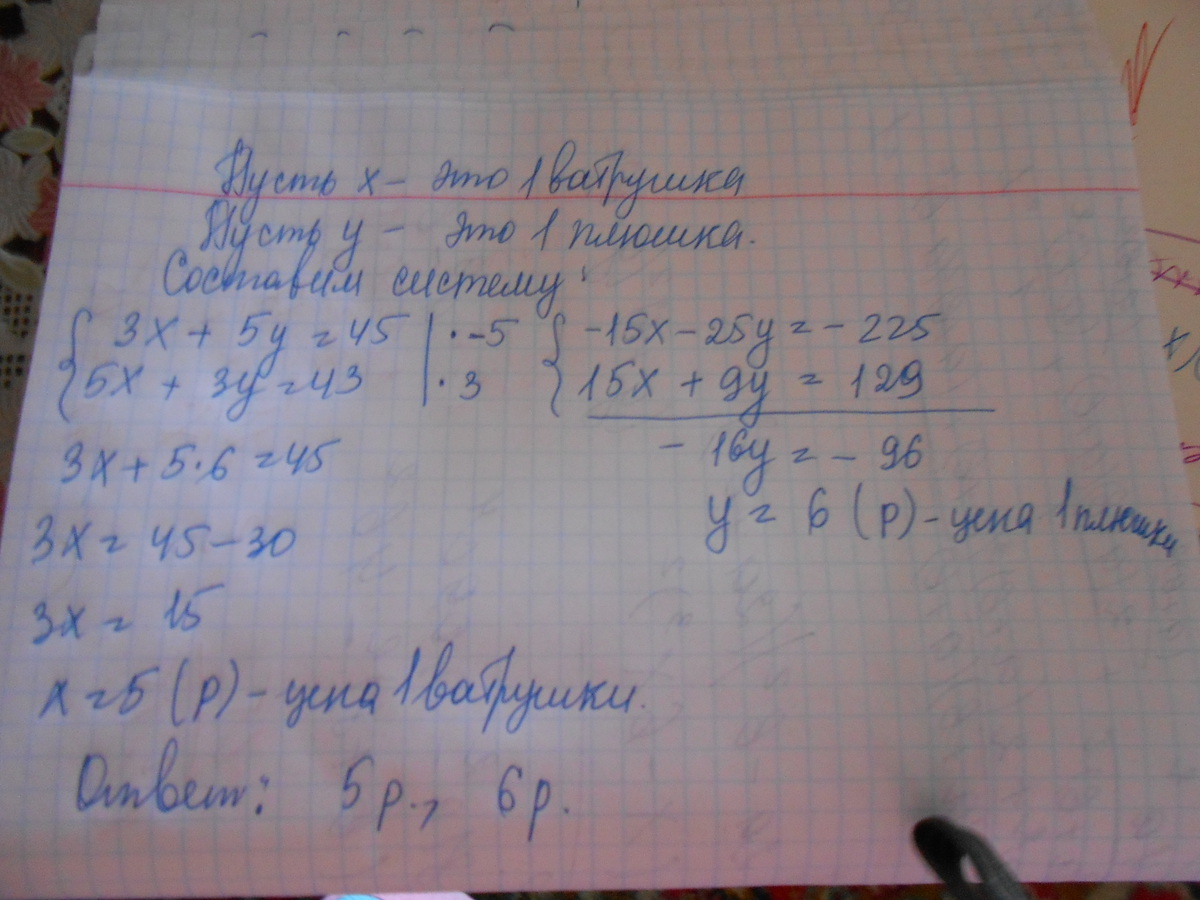 Пусть x – это 1 ватрушка
Пусть y – это 1 плюшка.
Составим систему:
{ 3x + 5y = 45 | · -5 { -15x - 25y = - 225
5x + 3y = 43 | · 3 15x + 9y = 129
- 16y = - 96
3x + 5·6 = 45
y = 6 (р) - цена 1 плюшки
3x = 45 - 30
3x = 15
x = 5 (р) - цена 1 ватрушки.
Ответ: 5р., 6р.